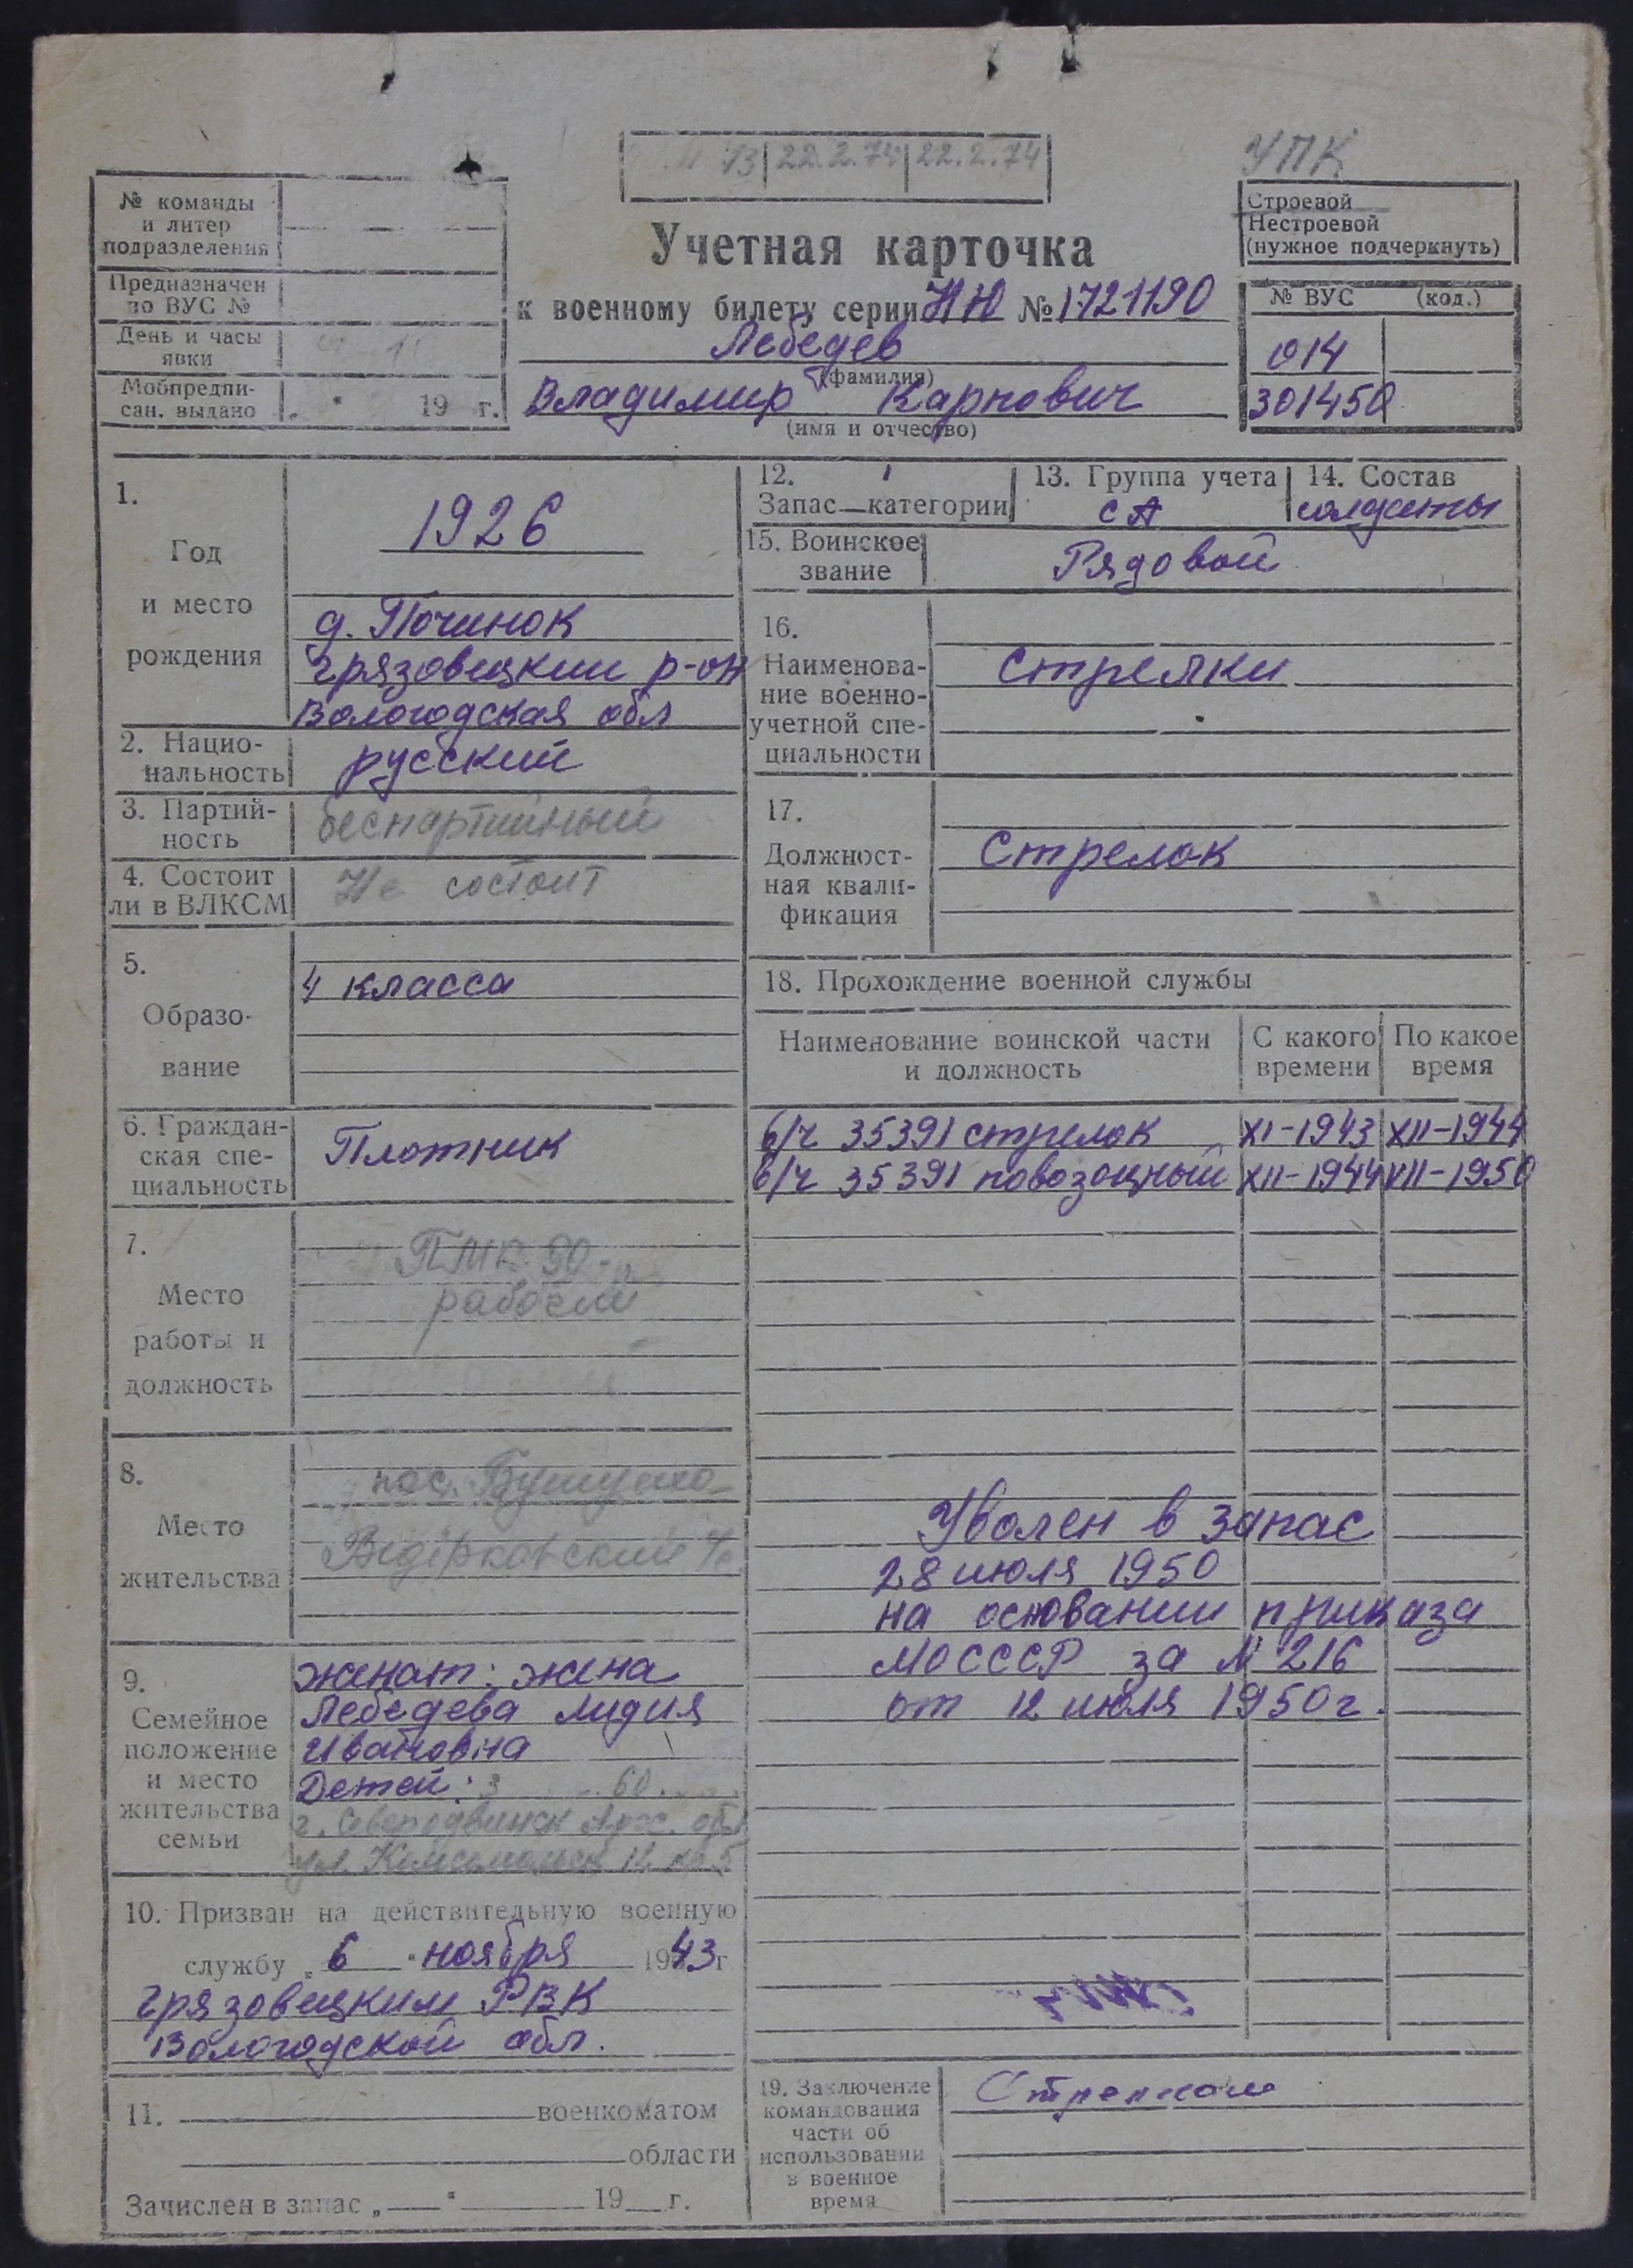 22.2.74 22.2.74
УПК
№ команды
и литер
подразделения
Предназначен
по ВУС №
День и часы
явки
Мобпредпи-
сан. выдано „ “ 19 г.
Учетная карточка
к военному билету серии НЮ № 1721190
Лебедев
(фамилия)
Владимир Карпович
(имя и отчество)
Строевой
Нестроевой
(нужное подчеркнуть)
№ ВУС (код.)
014
301450
1.
Год
и место
рождения
1926
д. Починок
Грязовецкий р-он
Вологодская обл
2. Нацио-
нальность
русский
3. Партий-
ность
беспартийный
4. Состоит
ли в ВЛКСМ
Не состоит
5.
Образо-
вание
4 класса
6. Граждан-
ская спе-
циальность
Плотник
7.
Место
работы и
должность
рабочий
8.
Место
жительства
пос.
9.
Семейное
положение
и место
жительства
семьи
женат: жена
Лебедева Лидия
Ивановна
Детей:
г. Северодвинск Арх. обл
10. Призван на действительную военную
службу „ 6 “ ноября 1943 г
Грязовецким РВК
Вологодской обл.
11. военкоматом
области
Зачислен в запас „ “ 19 г.
12. 1
Запас—категории
13. Группа учета
СА
14. Состав
солдаты
15. Воинское
звание
Рядовой
16.
Наименова-
ние военно-
учетной спе-
циальности
Стрелки
17.
Должност-
ная квали-
фикация
Стрелок
18. Прохождение военной службы
Наименование воинской части
и должность
С какого
времени
По какое
время
в/ч 35391 стрелок XI-1943 XII-1944
в/ч 35391 повозочный XII-1944 VII-1950
Уволен в запас
28 июля 1950
на основании приказа
МОСССР за № 216
от 12 июля 1950г.
19. Заключение
командования
части об
использовании
в военное
время
Стрелком